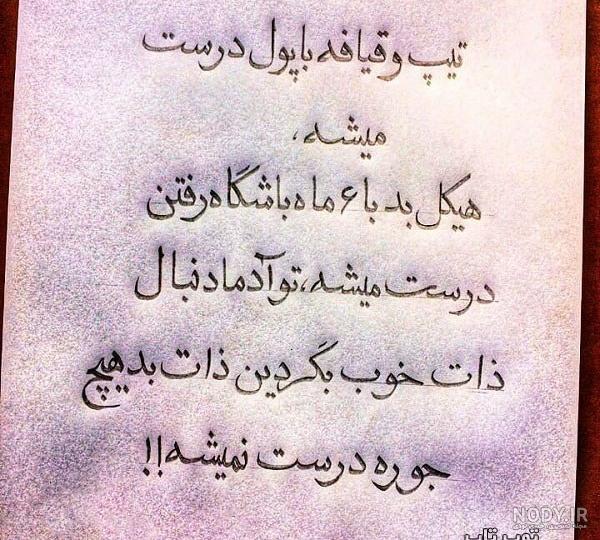 تیپ و قیافه با پول درست
میشه،
هیکل بد با ۶ ماه باشگاه رفتن
درست میشه، تو آدما دنبال
ذات خوب بگردین ذات بد هیچ
جوره درست نمیشه!!
NODY.IR
توپ تاپ